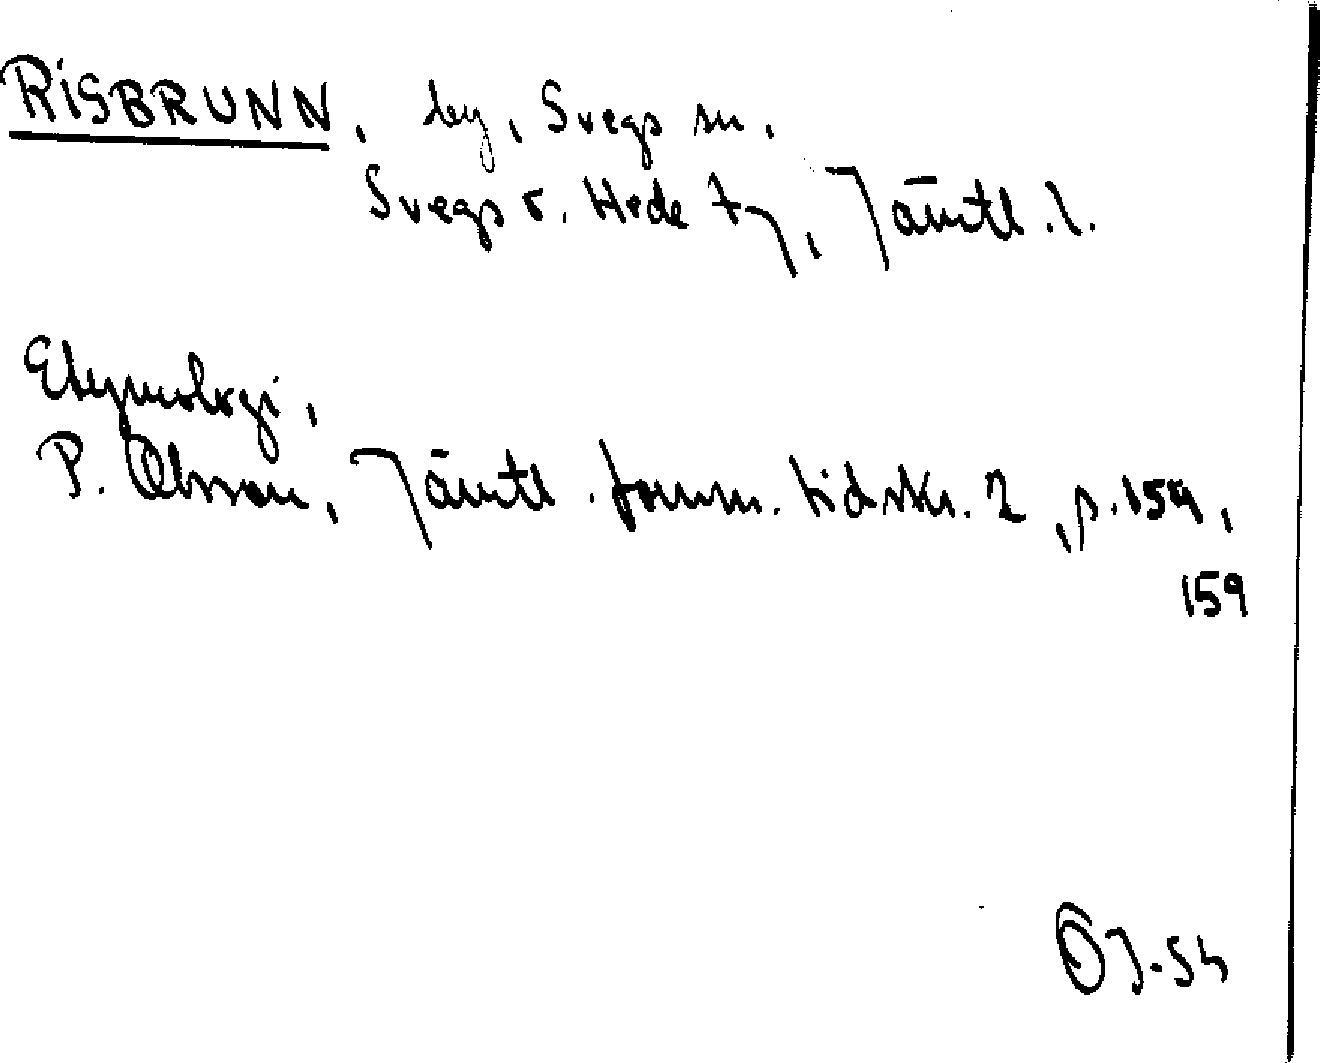 RISBRUNN, by, Svegs sn,
Svegs o. Hede t, Jämtl. l.
Etymologi,
P. Olsson, Jämtl. fornm. tidskr. 2, p. 159,
159